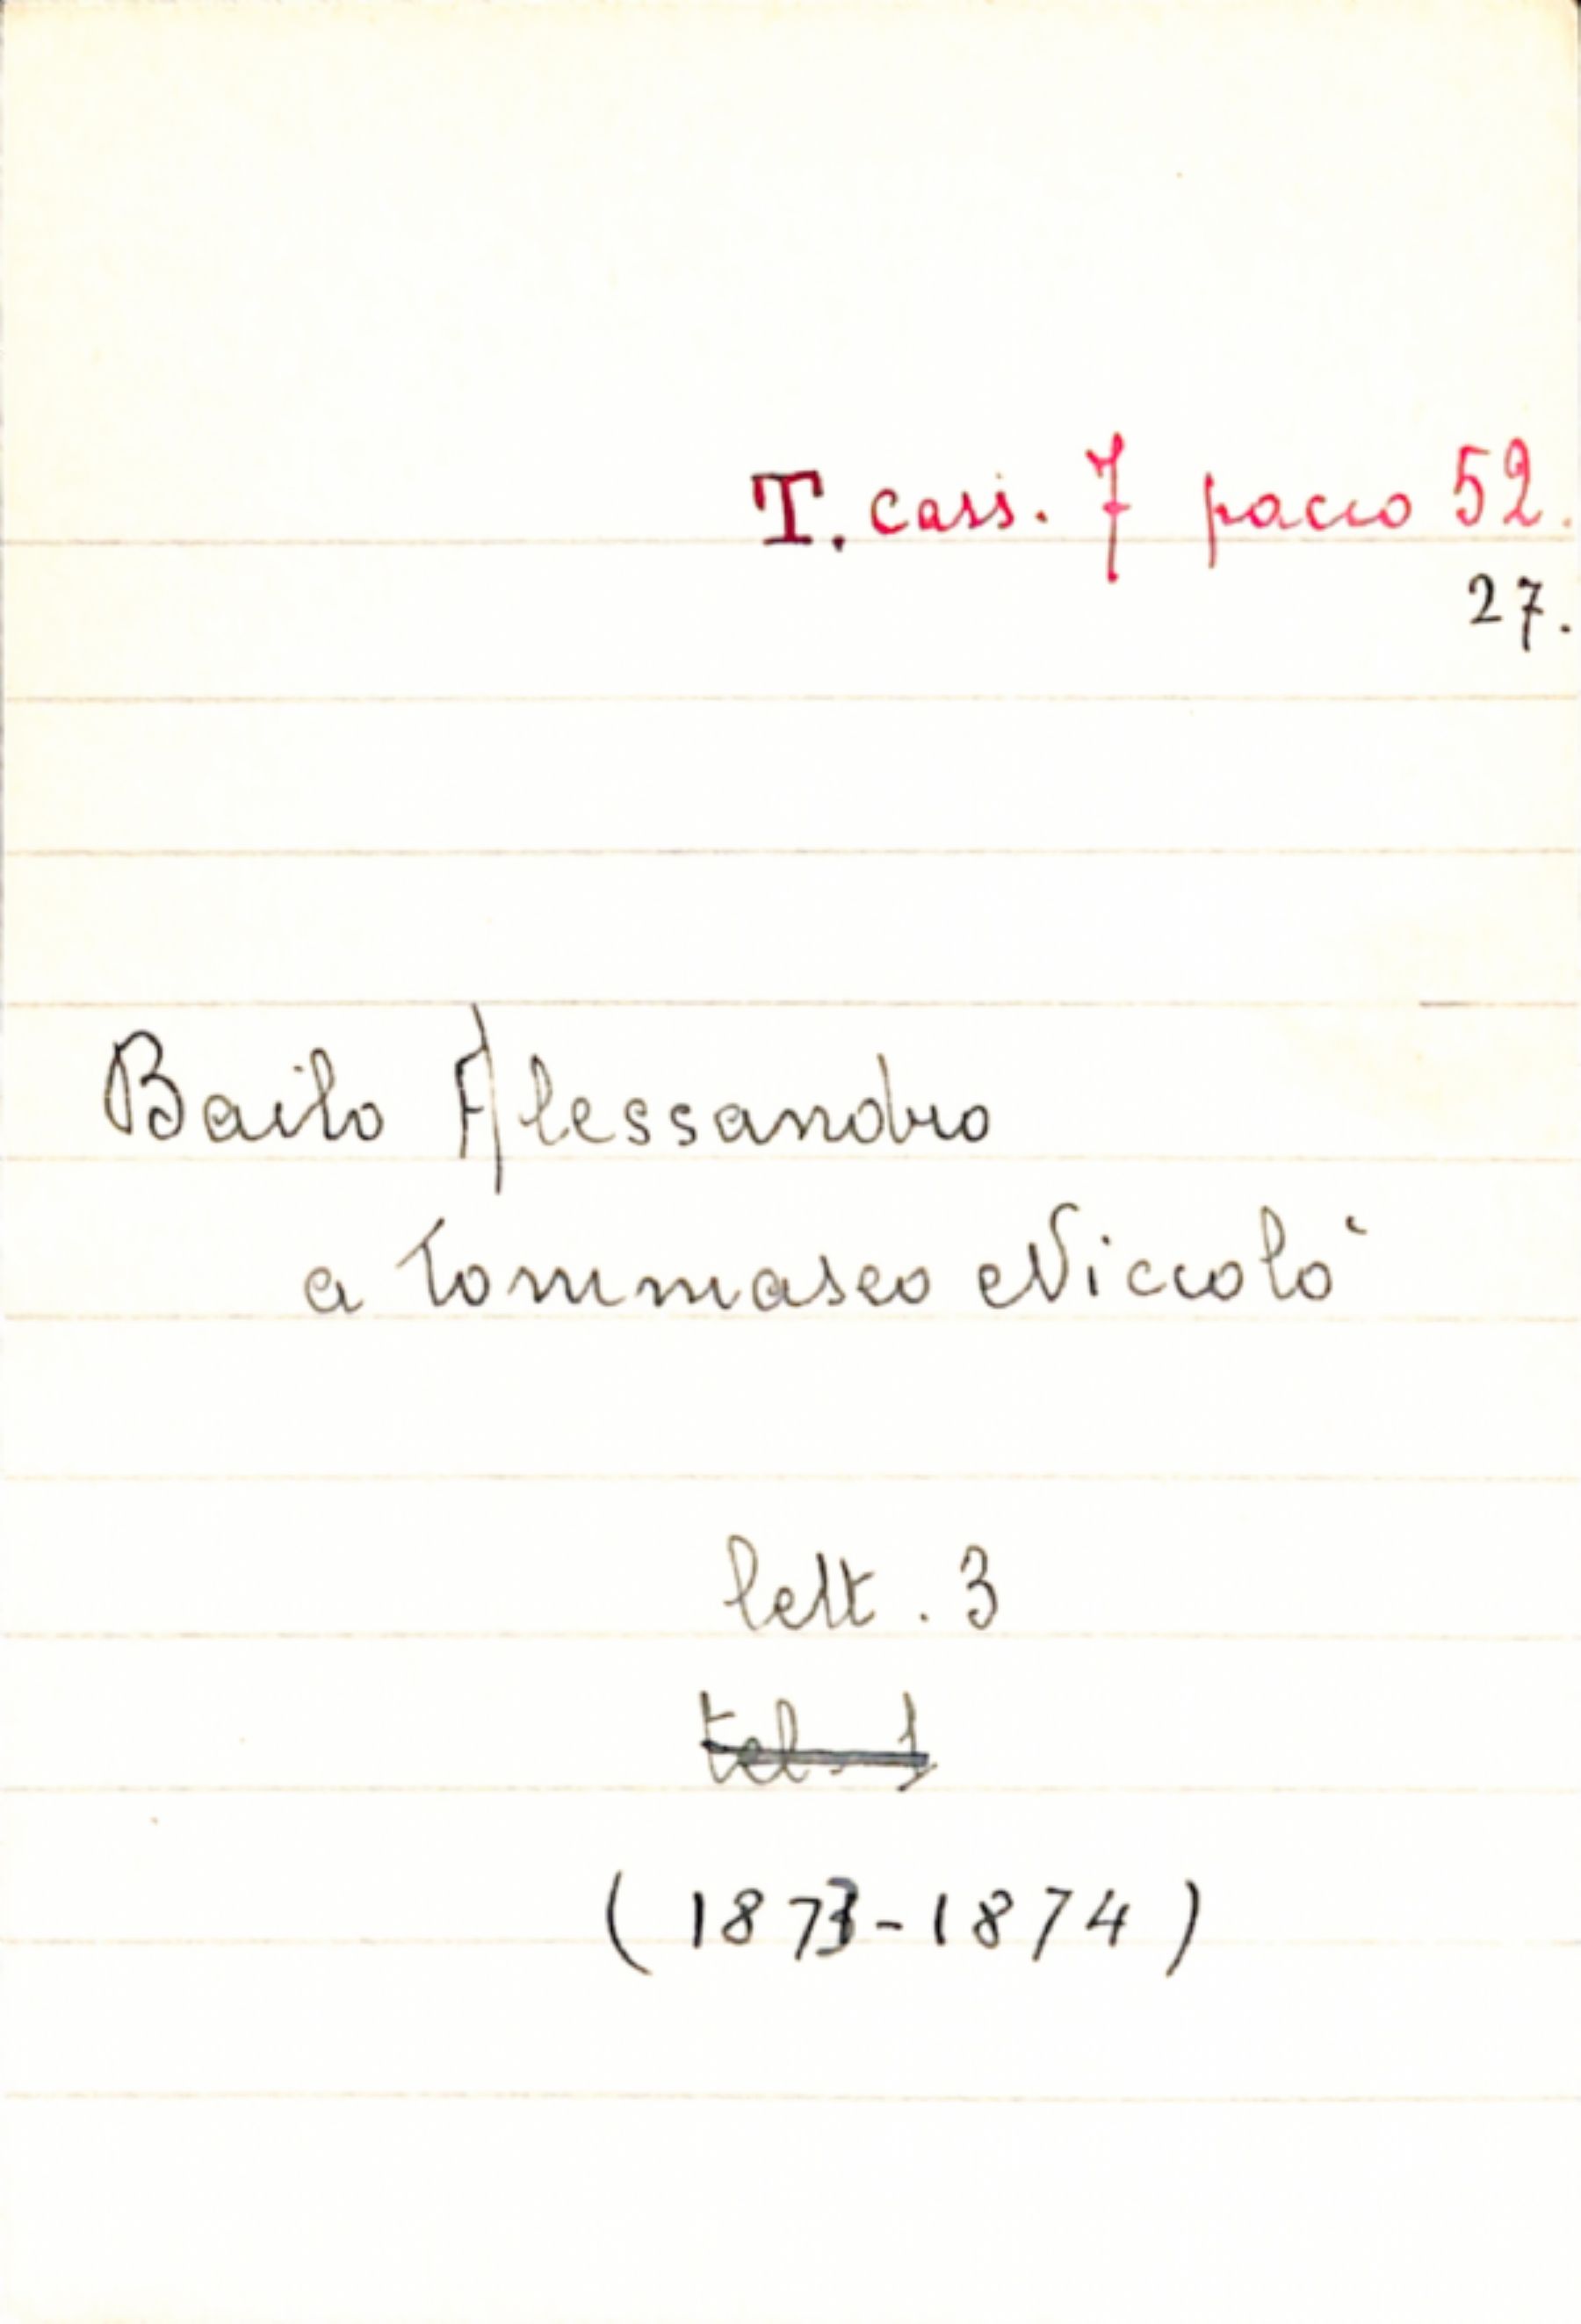 T. cass. 7 pacco 52.
27.
Bailo Alessandro
a Tommaseo Niccolò
lett. 3
tel. 1
(1873-1874)